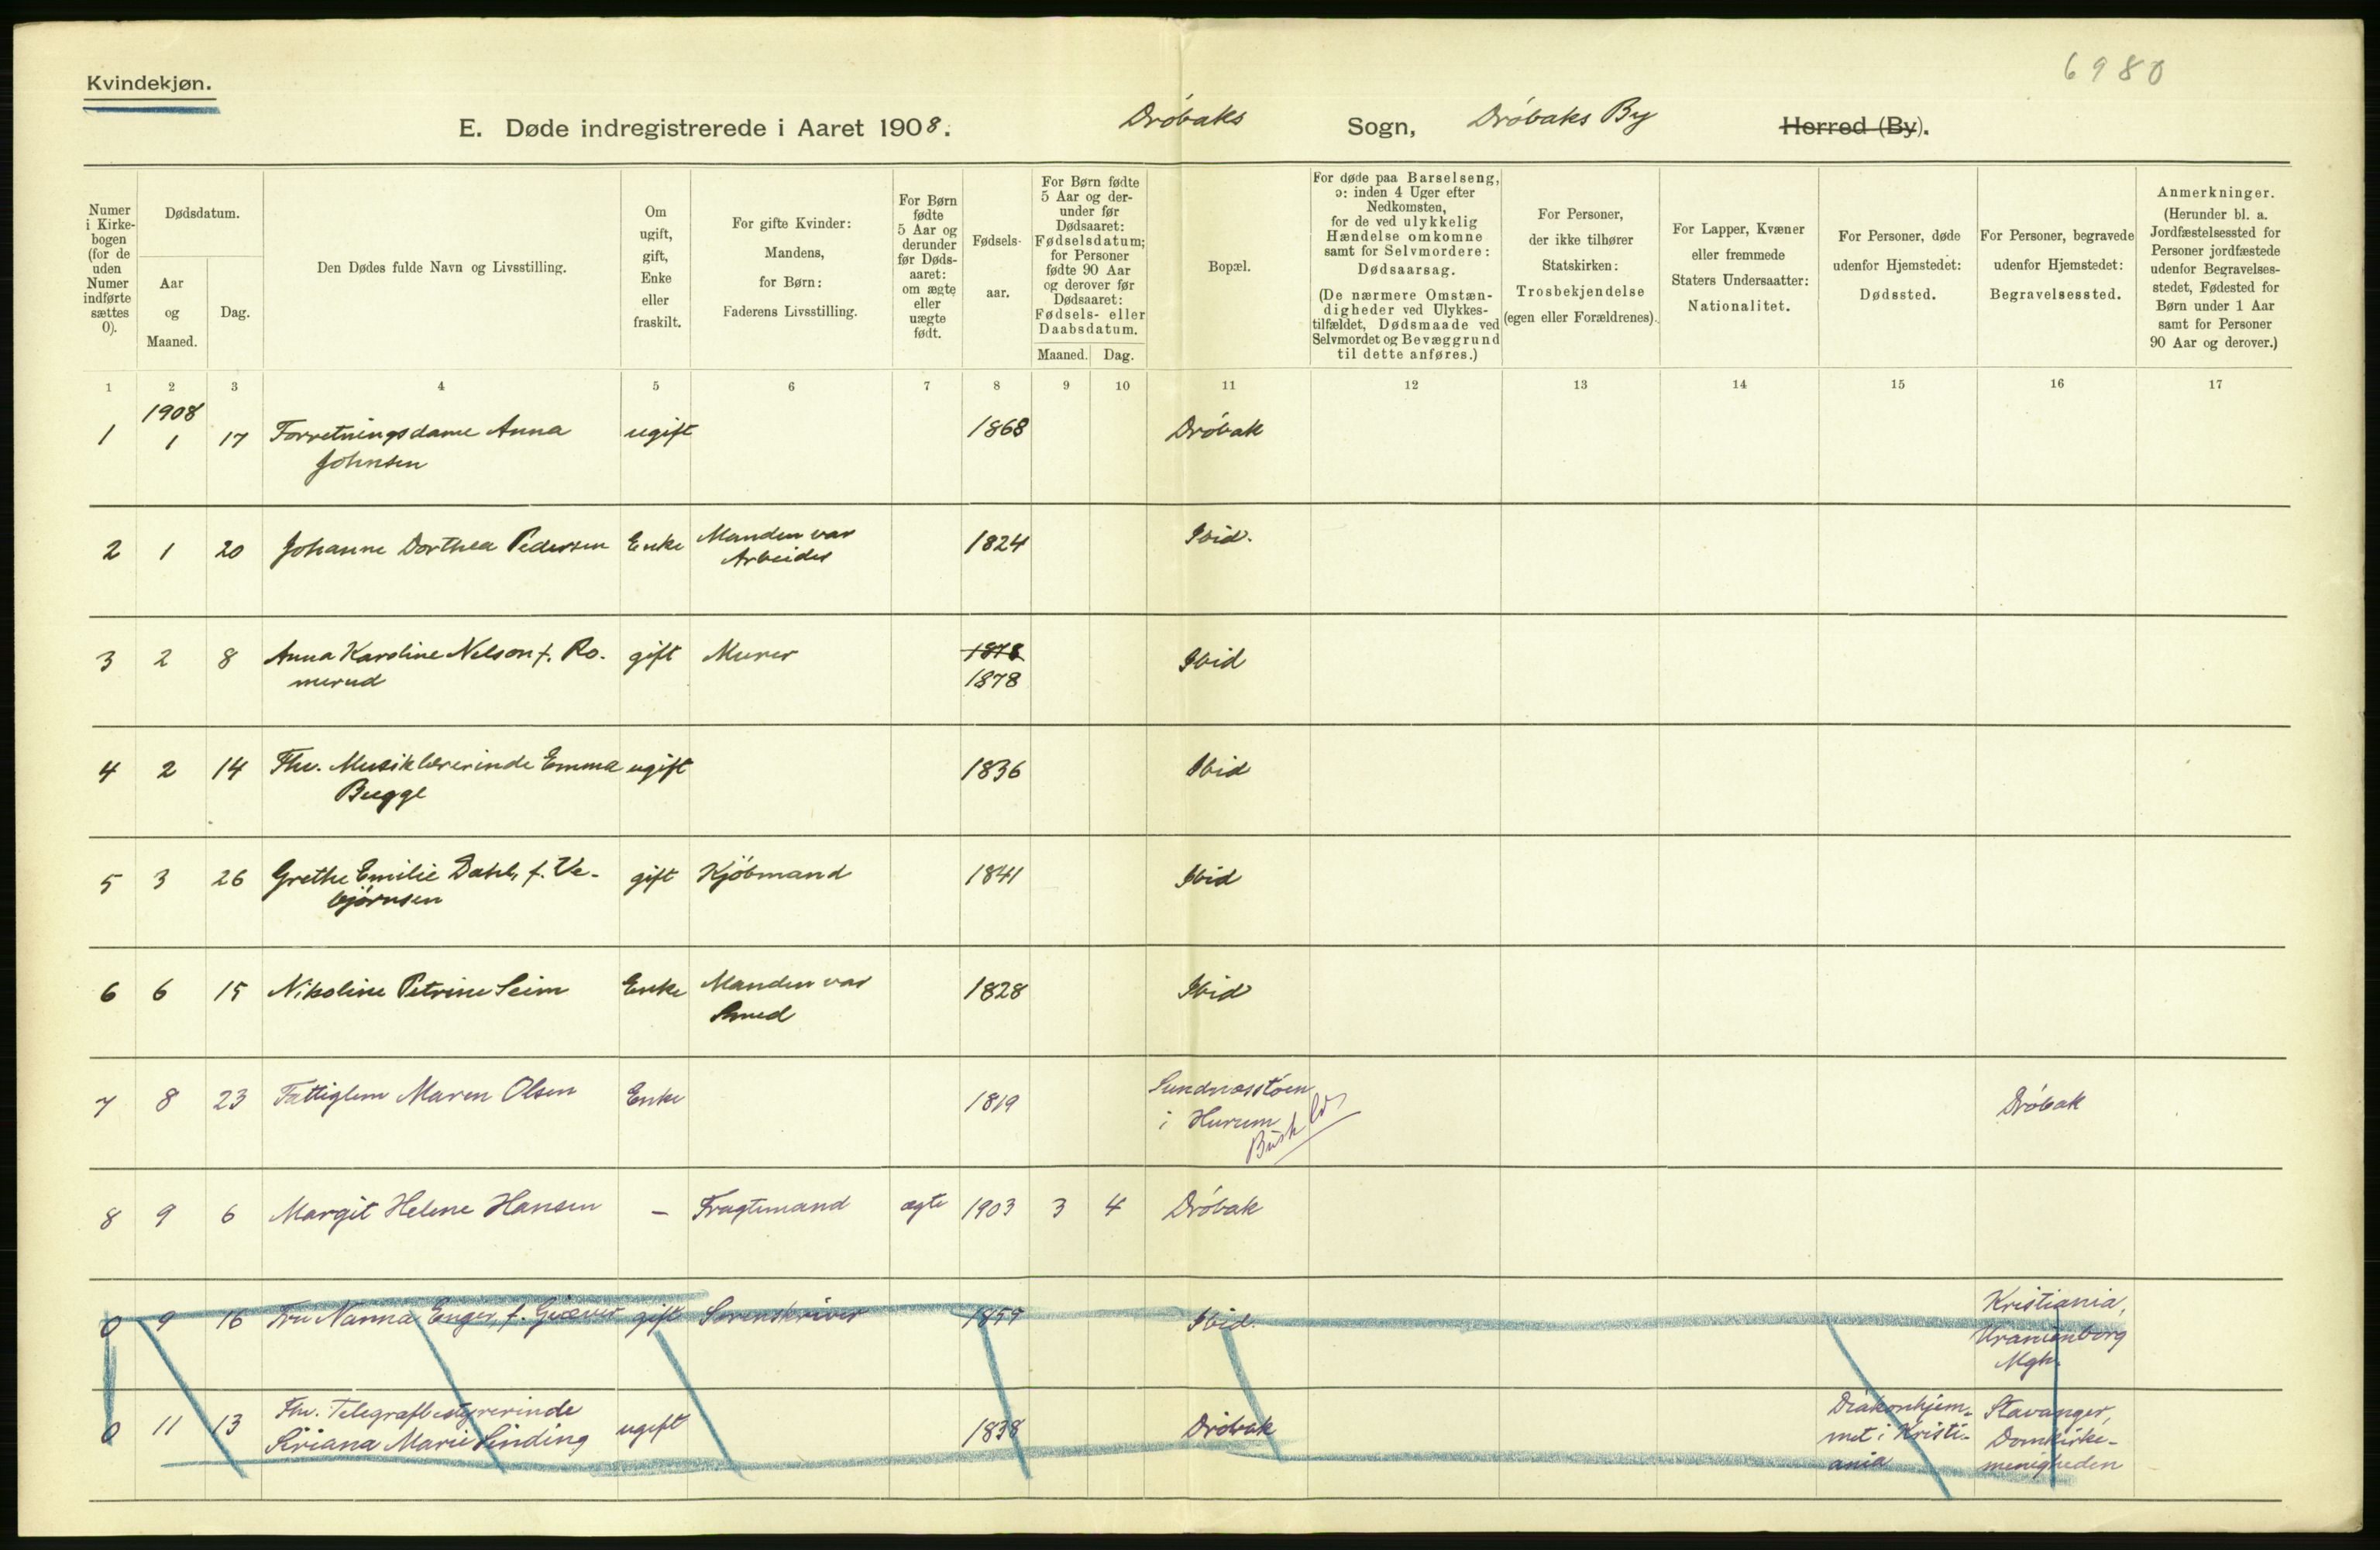 Kvindekjøn.
6980
E. Døde indregistrerede i Aaret 1908. Drøbaks Sogn, Drøbaks By Herred (By).
Numer i Kirkebogen (for de uden Numer indførte sættes 0).
Dødsdatum.
Aar og Maaned.
Dag.
Den Dødes fulde Navn og Livsstilling.
Om ugift, gift, Enke eller fraskilt.
For gifte Kvinder: Mandens, for Børn: Faderens Livsstilling.
For Børn fødte 5 Aar og derunder før Dødsaaret: om ægte eller uægte født.
Fødselsaar.
For Børn fødte 5 Aar og derunder før Dødsaaret: Fødselsdatum; for Personer fødte 90 Aar og derover før Dødsaaret: Fødsels- eller Daabsdatum.
Maaned. Dag.
Bopæl.
For døde paa Barselseng, ɔ: inden 4 Uger efter Nedkomsten, for de ved ulykkelig Hændelse omkomne samt for Selvmordere: Dødsaarsag.
(De nærmere Omstændigheder ved Ulykkestilfældet, Dødsmaade ved Selvmordet og Bevæggrund til dette anføres.)
For Personer, der ikke tilhører Statskirken: Trosbekjendelse (egen eller Forældrenes).
For Lapper, Kvæner eller fremmede Staters Undersaatter: Nationalitet.
For Personer, døde udenfor Hjemstedet: Dødssted.
For Personer, begravede udenfor Hjemstedet: Begravelsessted.
Anmerkninger.
(Herunder bl. a. Jordfæstelsessted for Personer jordfæstede udenfor Begravelsesstedet, Fødested for Børn under 1 Aar samt for Personer 90 Aar og derover.)
1 2 3 4 5 6 7 8 9 10 11 12 13 14 15 16 17
1908
1 1 17 Forretningsdame Anna ugift 1868 Drøbak
Johnsen
2 1 20 Johanne Dorthea Pedersen Enke Manden var 1824 Ibid.
Arbeider
3 2 8 Anna Karoline Nelson f. Ro- gift Murer 1878 Ibid
merud 1878
4 2 14 Fhv. Musiklærerinde Emma ugift 1836 Ibid
Bugge
5 3 26 Grethe Emilie Dahl, f. Ve- gift Kjøbmand 1841 Ibid
bjørnsen
6 6 15 Nikoline Petrine Seim Enke Manden var 1828 Ibid
Smed
7 8 23 Fattiglem Maren Olsen Enke 1819 Sundnæsstøen Drøbak
i Hurum
Busk
8 9 6 Margit Helene Hansen – Fragtemand ægte 1903 3 4 Drøbak
0 9 16 Fru Nanna Enger, f. Giæver gift Sorenskriver Ibid. Kristiania,
Uranienborg
Mgh.
0 11 13 Fhv. Telegrafbestyrerinde ugift 1838 Drøbak Diakonhjem- Stavanger,
Marie Sinding met i Kristi- Domkirke-
ania menigheden